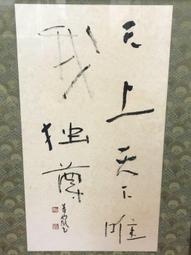 天上天下唯
我独尊